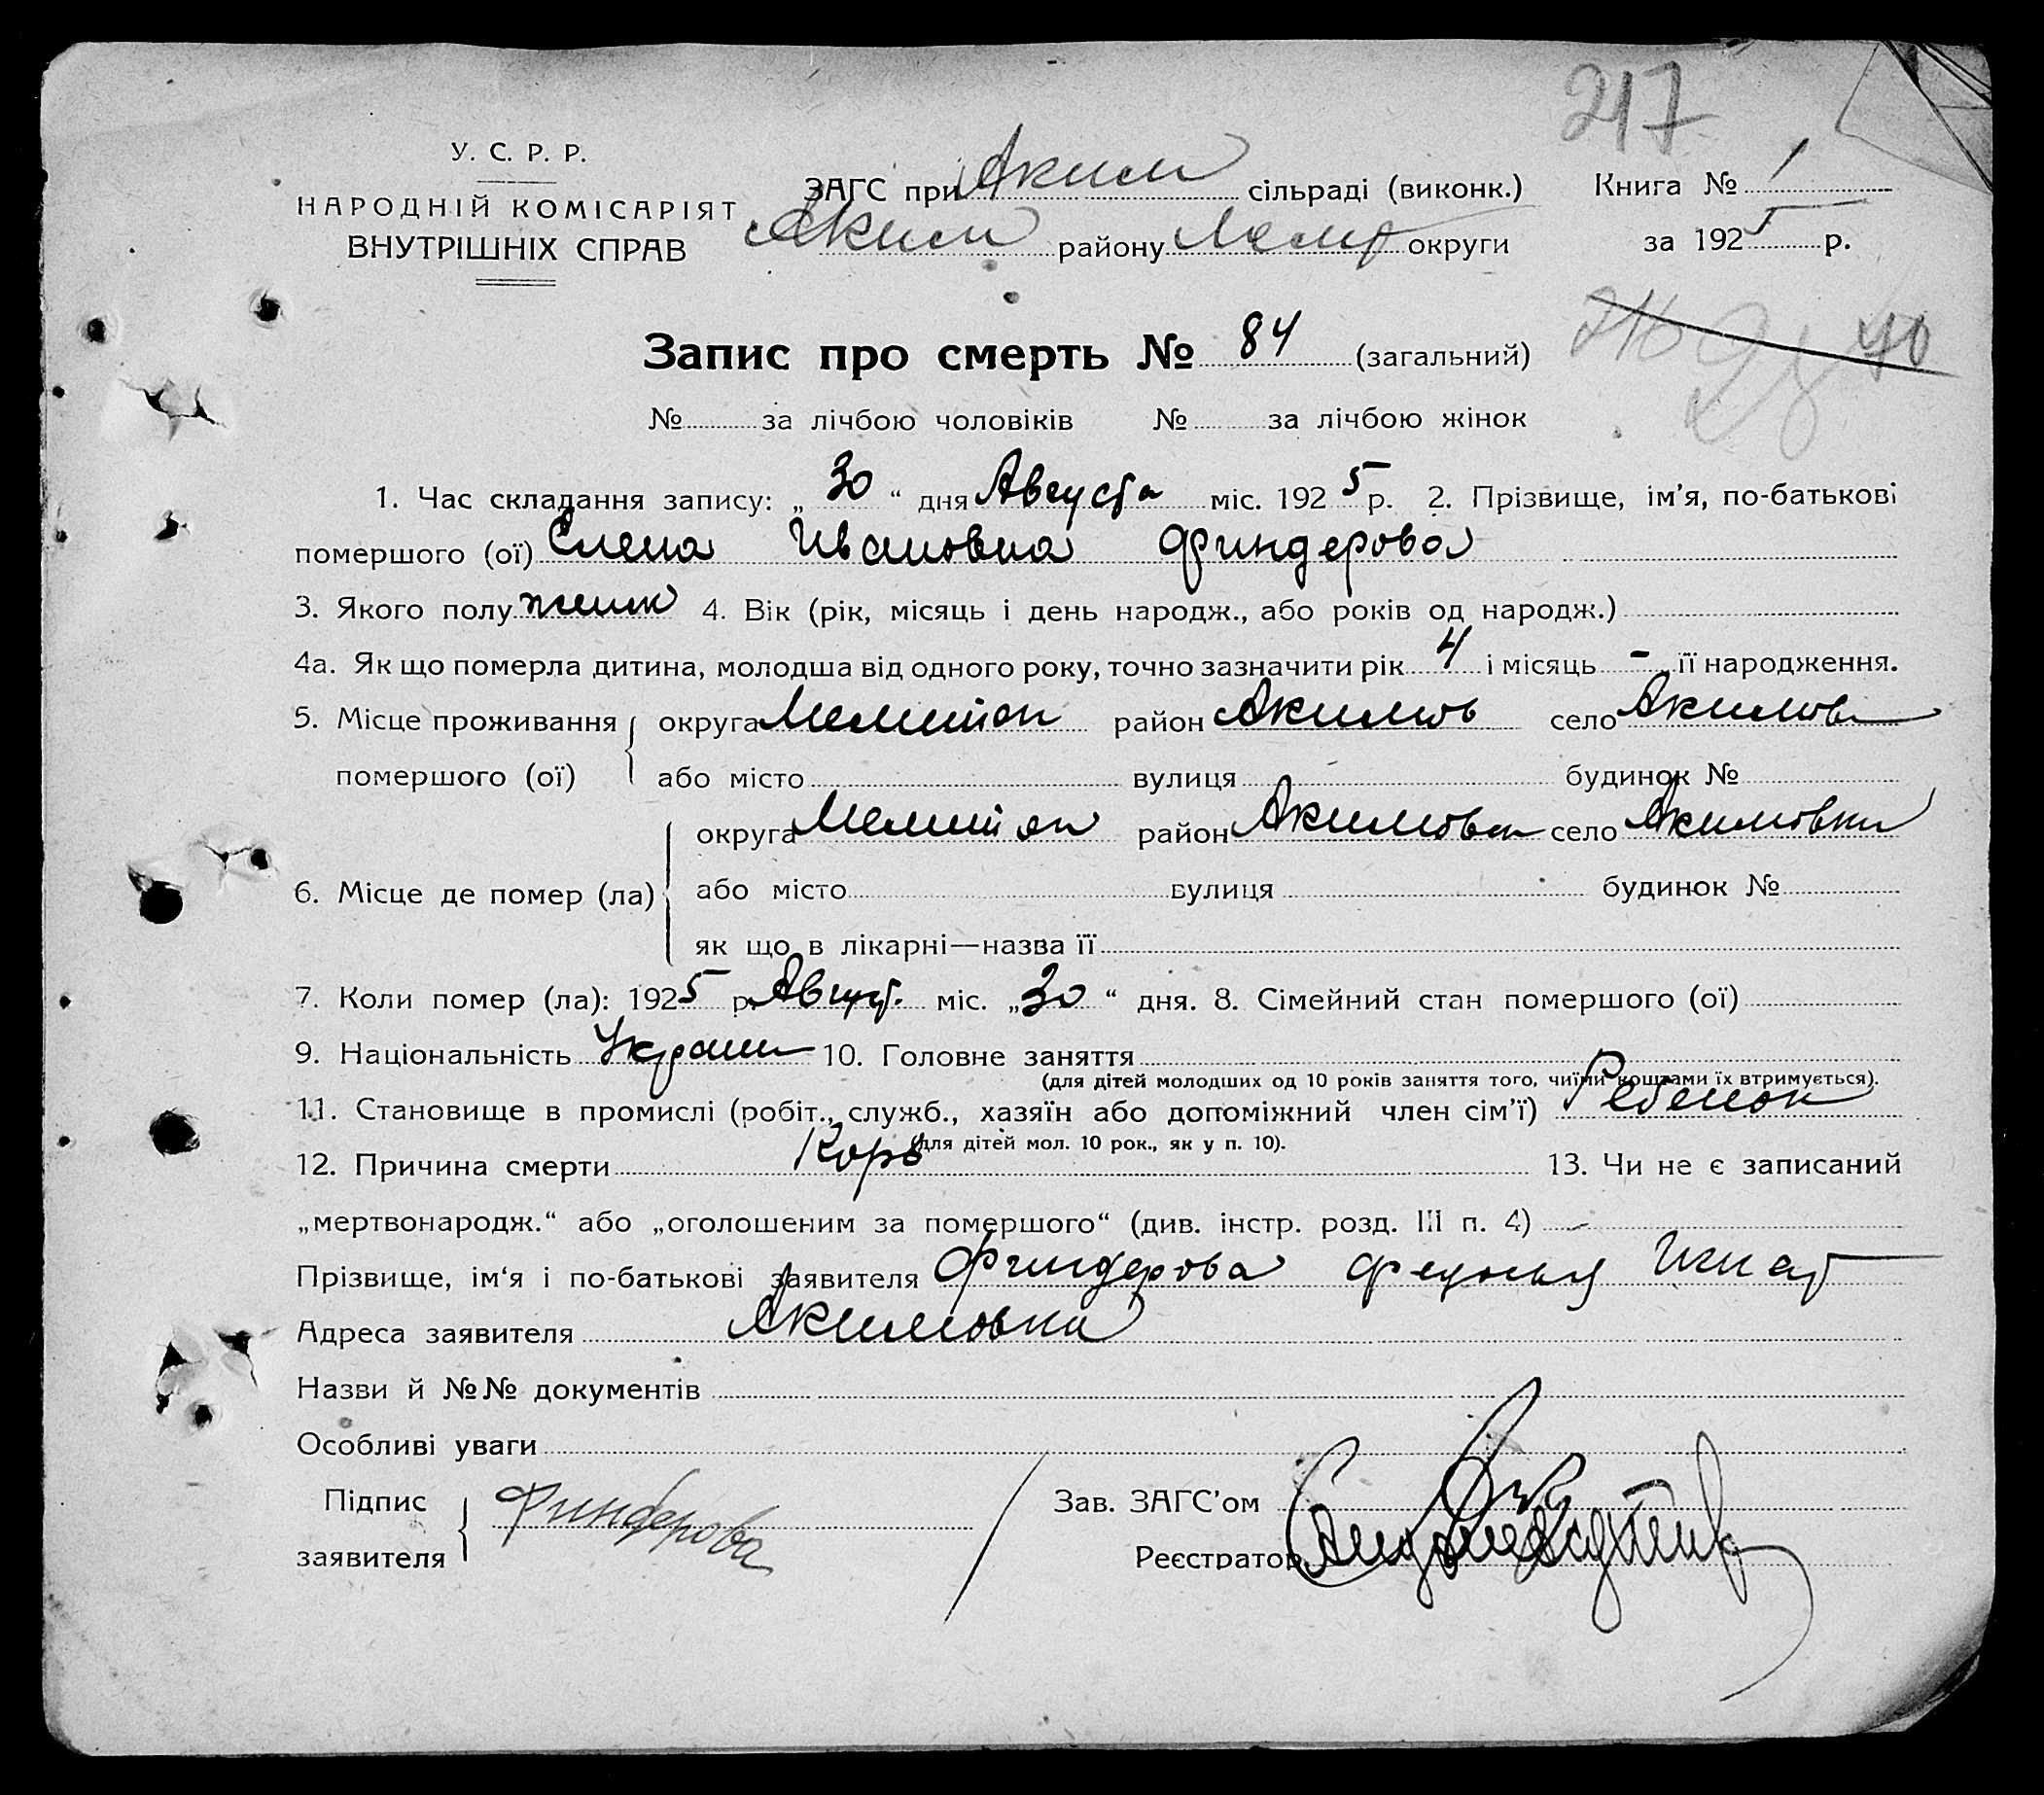 217
У. С. Р. Р.
НАРОДНІЙ КОМІСАРІЯТ
ВНУТРІШНІХ СПРАВ
ЗАГС при Аким сільраді (виконк.) Книга № 1
Аким району округи за 1925 р.
Запис про смерть № 84 (загальний)
№ за лічбою чоловіків № за лічбою жінок
1. Час складання запису: „30“ дня Августа міс. 1925 р. 2. Прізвище, ім'я, по-батькові
помершого (ої) Елена Ивановна Финдерова
3. Якого полу женск 4. Вік (рік, місяць і день народж., або років од народж.)
4а. Як що померла дитина, молодша від одного року, точно зазначити рік 4 і місяць - її народження.
5. Місце проживання округа Мелитоп район Акимов село Акимовк
помершого (ої) або місто вулиця будинок №
округа Мелитоп район Акимовк село Акимовка
6. Місце де помер (ла) або місто вулиця будинок №
як що в лікарні—назва її
7. Коли помер (ла): 1925 р. Август. міс. „30“ дня. 8. Сімейний стан помершого (ої)
9. Національність Украин 10. Головне заняття
(для дітей молодших од 10 років заняття того, чиїми коштами їх втримується).
11. Становище в промислі (робіт., служб., хазяїн або допоміжний член сім'ї) Ребенок
(для дітей мол. 10 рок., як у п. 10).
12. Причина смерти Корь 13. Чи не є записаний
„мертвонародж.“ або „оголошеним за помершого“ (див. інстр. розд. III п. 4) -
Прізвище, ім'я і по-батькові заявителя Финдерова Игнат
Адреса заявителя Акимовка
Назви й №№ документів
Особливі уваги
Підпис Финдерова Зав. ЗАГС'ом
заявителя Реєстратор